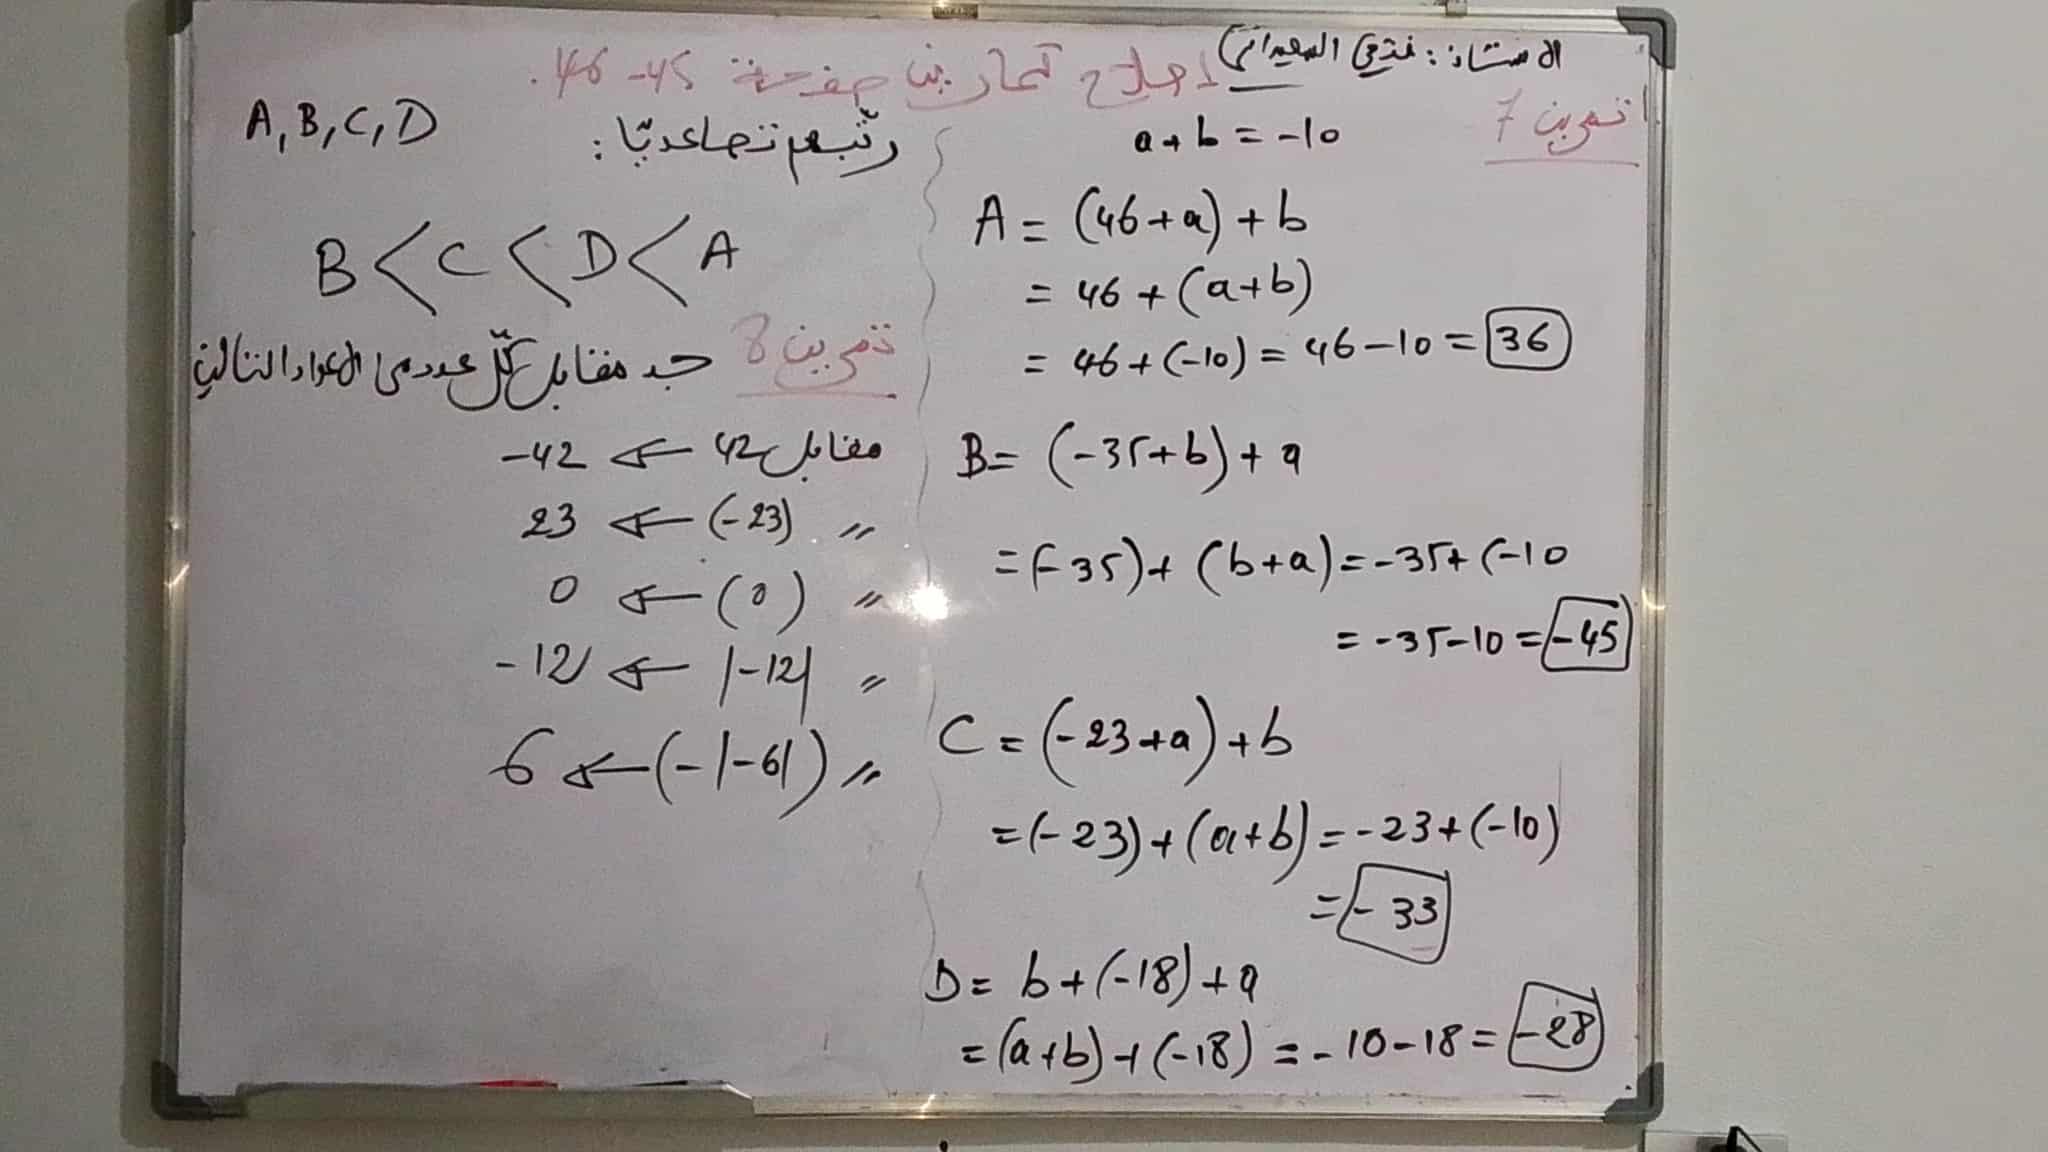 الاستاذ: فتحي السعيداني
اصلاح تمارين صفحة 45-46.
تمرين 7
a+b = -10
A = (46+a)+b
= 46+(a+b)
= 46+(-10) = 46-10 = 36
B= (-35+b)+a
=(-35)+(b+a)=-35+(-10
= -35-10 = -45
C = (-23+a)+b
=(-23)+(a+b)=-23+(-10)
= -33
D= b+(-18)+a
=(a+b)+(-18) = -10-18 = -28
رتّبهم تصاعديّا: A, B, C, D
B < C < D < A
تمرين 8 جد مقابل كلّ عدد من الاعداد التالية
مقابل 42 ← -42
〃 (-23) ← 23
〃 (0) ← 0
〃 |-12| ← -12
〃 (-|-6|) ← 6